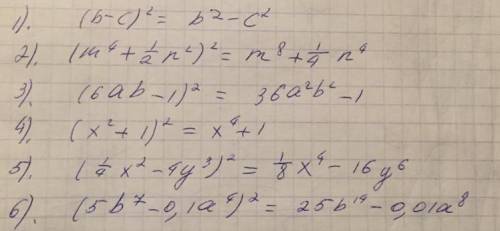 1). (b-c)² = b²-c²
2). (m⁴+½n²)² = m⁸+¼n⁴
3). (6ab-1)² = 36a²b²-1
4). (x²+1)² = x⁴+1
5). (¼x²-4y³)² = ⅛x⁴-16y⁶
6). (5b⁷-0,1a⁴)² = 25b¹⁴-0,01a⁸